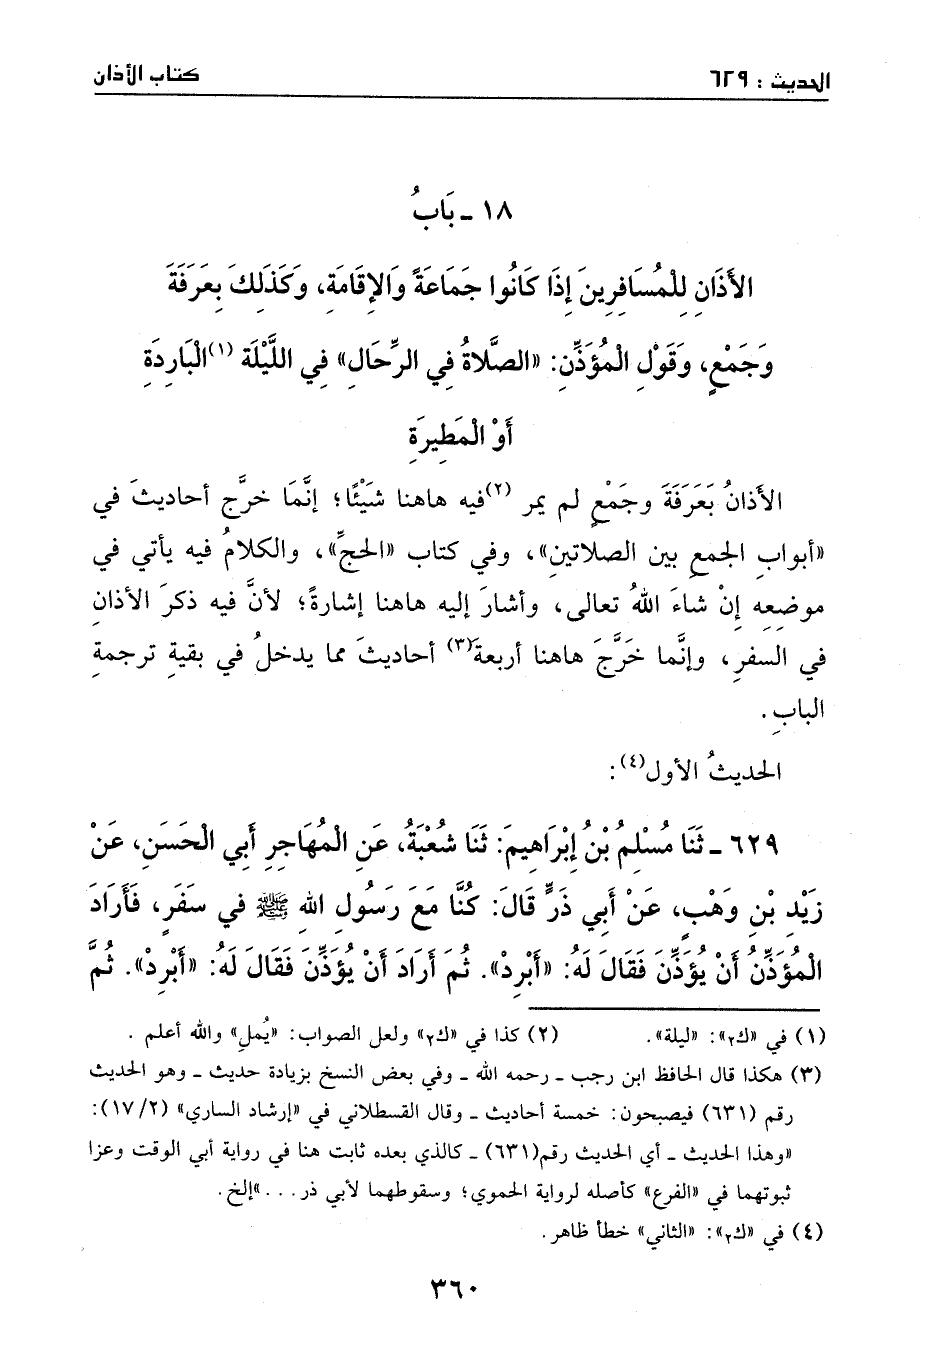 الحديث : ٦٢٩
كتاب الأذان
١٨ ـ بَابُ
الأَذَانِ لِلْمُسَافِرِينَ إِذَا كَانُوا جَمَاعَةً وَالإِقَامَةِ، وَكَذَلِكَ بِعَرَفَةَ
وَجَمْعٍ، وَقَوْلِ الْمُؤَذِّنِ: «الصَّلاةُ فِي الرِّحَالِ» فِي اللَّيْلَة (١)الْبَارِدَةِ
أَوْ الْمَطِيرَةِ
الأذانُ بَعَرَفَةَ وجَمْعٍ لم يمر (٢)فيه هاهنا شَيْئًا؛ إنَّمَا خرَّج أحاديثَ في
«أبوابِ الجمعِ بين الصلاتينِ»، وفي كتاب «الحجِّ»، والكلامُ فيه يأتي في
موضعِه إنْ شاءَ اللهُ تعالى، وأشارَ إليه هاهنا إشارةً؛ لأنَّ فيه ذكرَ الأذانِ
في السفرِ، وإنَّما خَرَّجَ هاهنا أربعةَ(٣) أحاديثَ مما يدخلُ في بقيةِ ترجمةِ
البابِ.
الحديثُ الأول(٤):
٦٢٩ ـ ثَنَا مُسْلِمُ بْنُ إِبْرَاهِيمَ: ثَنَا شُعْبَةُ، عَنِ الْمُهَاجِرِ أَبِي الْحَسَنِ، عَنْ
زَيْدِ بْنِ وَهْبٍ، عَنْ أَبِي ذَرٍّ قَالَ: كُنَّا مَعَ رَسُولِ اللهِ ﷺ فِي سَفَرٍ، فَأَرَادَ
الْمُؤَذِّنُ أَنْ يُؤَذِّنَ فَقَالَ لَهُ: «أَبْرِدْ». ثُمَّ أَرَادَ أَنْ يُؤَذِّنَ فَقَالَ لَهُ: «أَبْرِدْ». ثُمَّ
(١) في «ك٢»: «ليلة». (٢) كذا في «ك٢» ولعل الصواب: «يُملِ» والله أعلم .
(٣) هكذا قال الحافظ ابن رجب ـ رحمه الله ـ وفي بعض النسخ بزيادة حديث ـ وهو الحديث
رقم (٦٣١) فيصبحون: خمسة أحاديث ـ وقال القسطلاني في «إرشاد الساري» (١٧/٢):
«وهذا الحديث ـ أي الحديث رقم(٦٣١) ـ كالذي بعده ثابت هنا في رواية أبي الوقت وعزا
ثبوتهما في «الفرع» كأصله لرواية الحموي؛ وسقوطهما لأبي ذر . . .»إلخ.
(٤) في «ك٢»: «الثاني» خطأ ظاهر.
٣٦٠